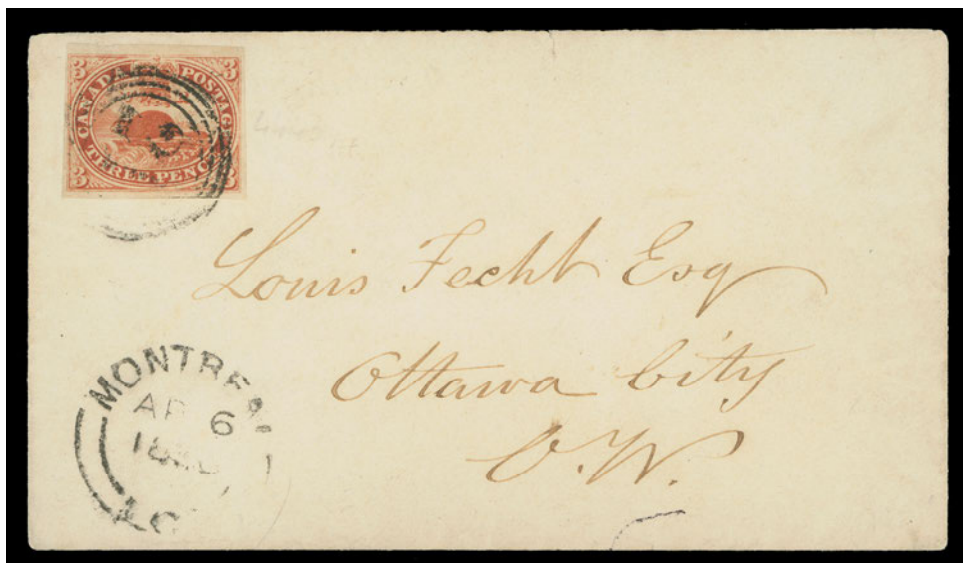 3 3
CANADA POSTAGE
THREE PENCE
3 3
Louis Fecht Esq
Ottawa City
C.W.
MONTREAL
AP 6
L.C.